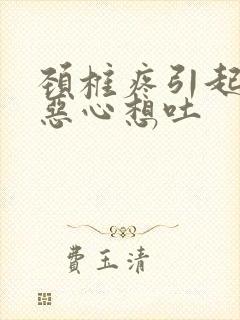 颈柱疼引起
惡心想吐
費玉清